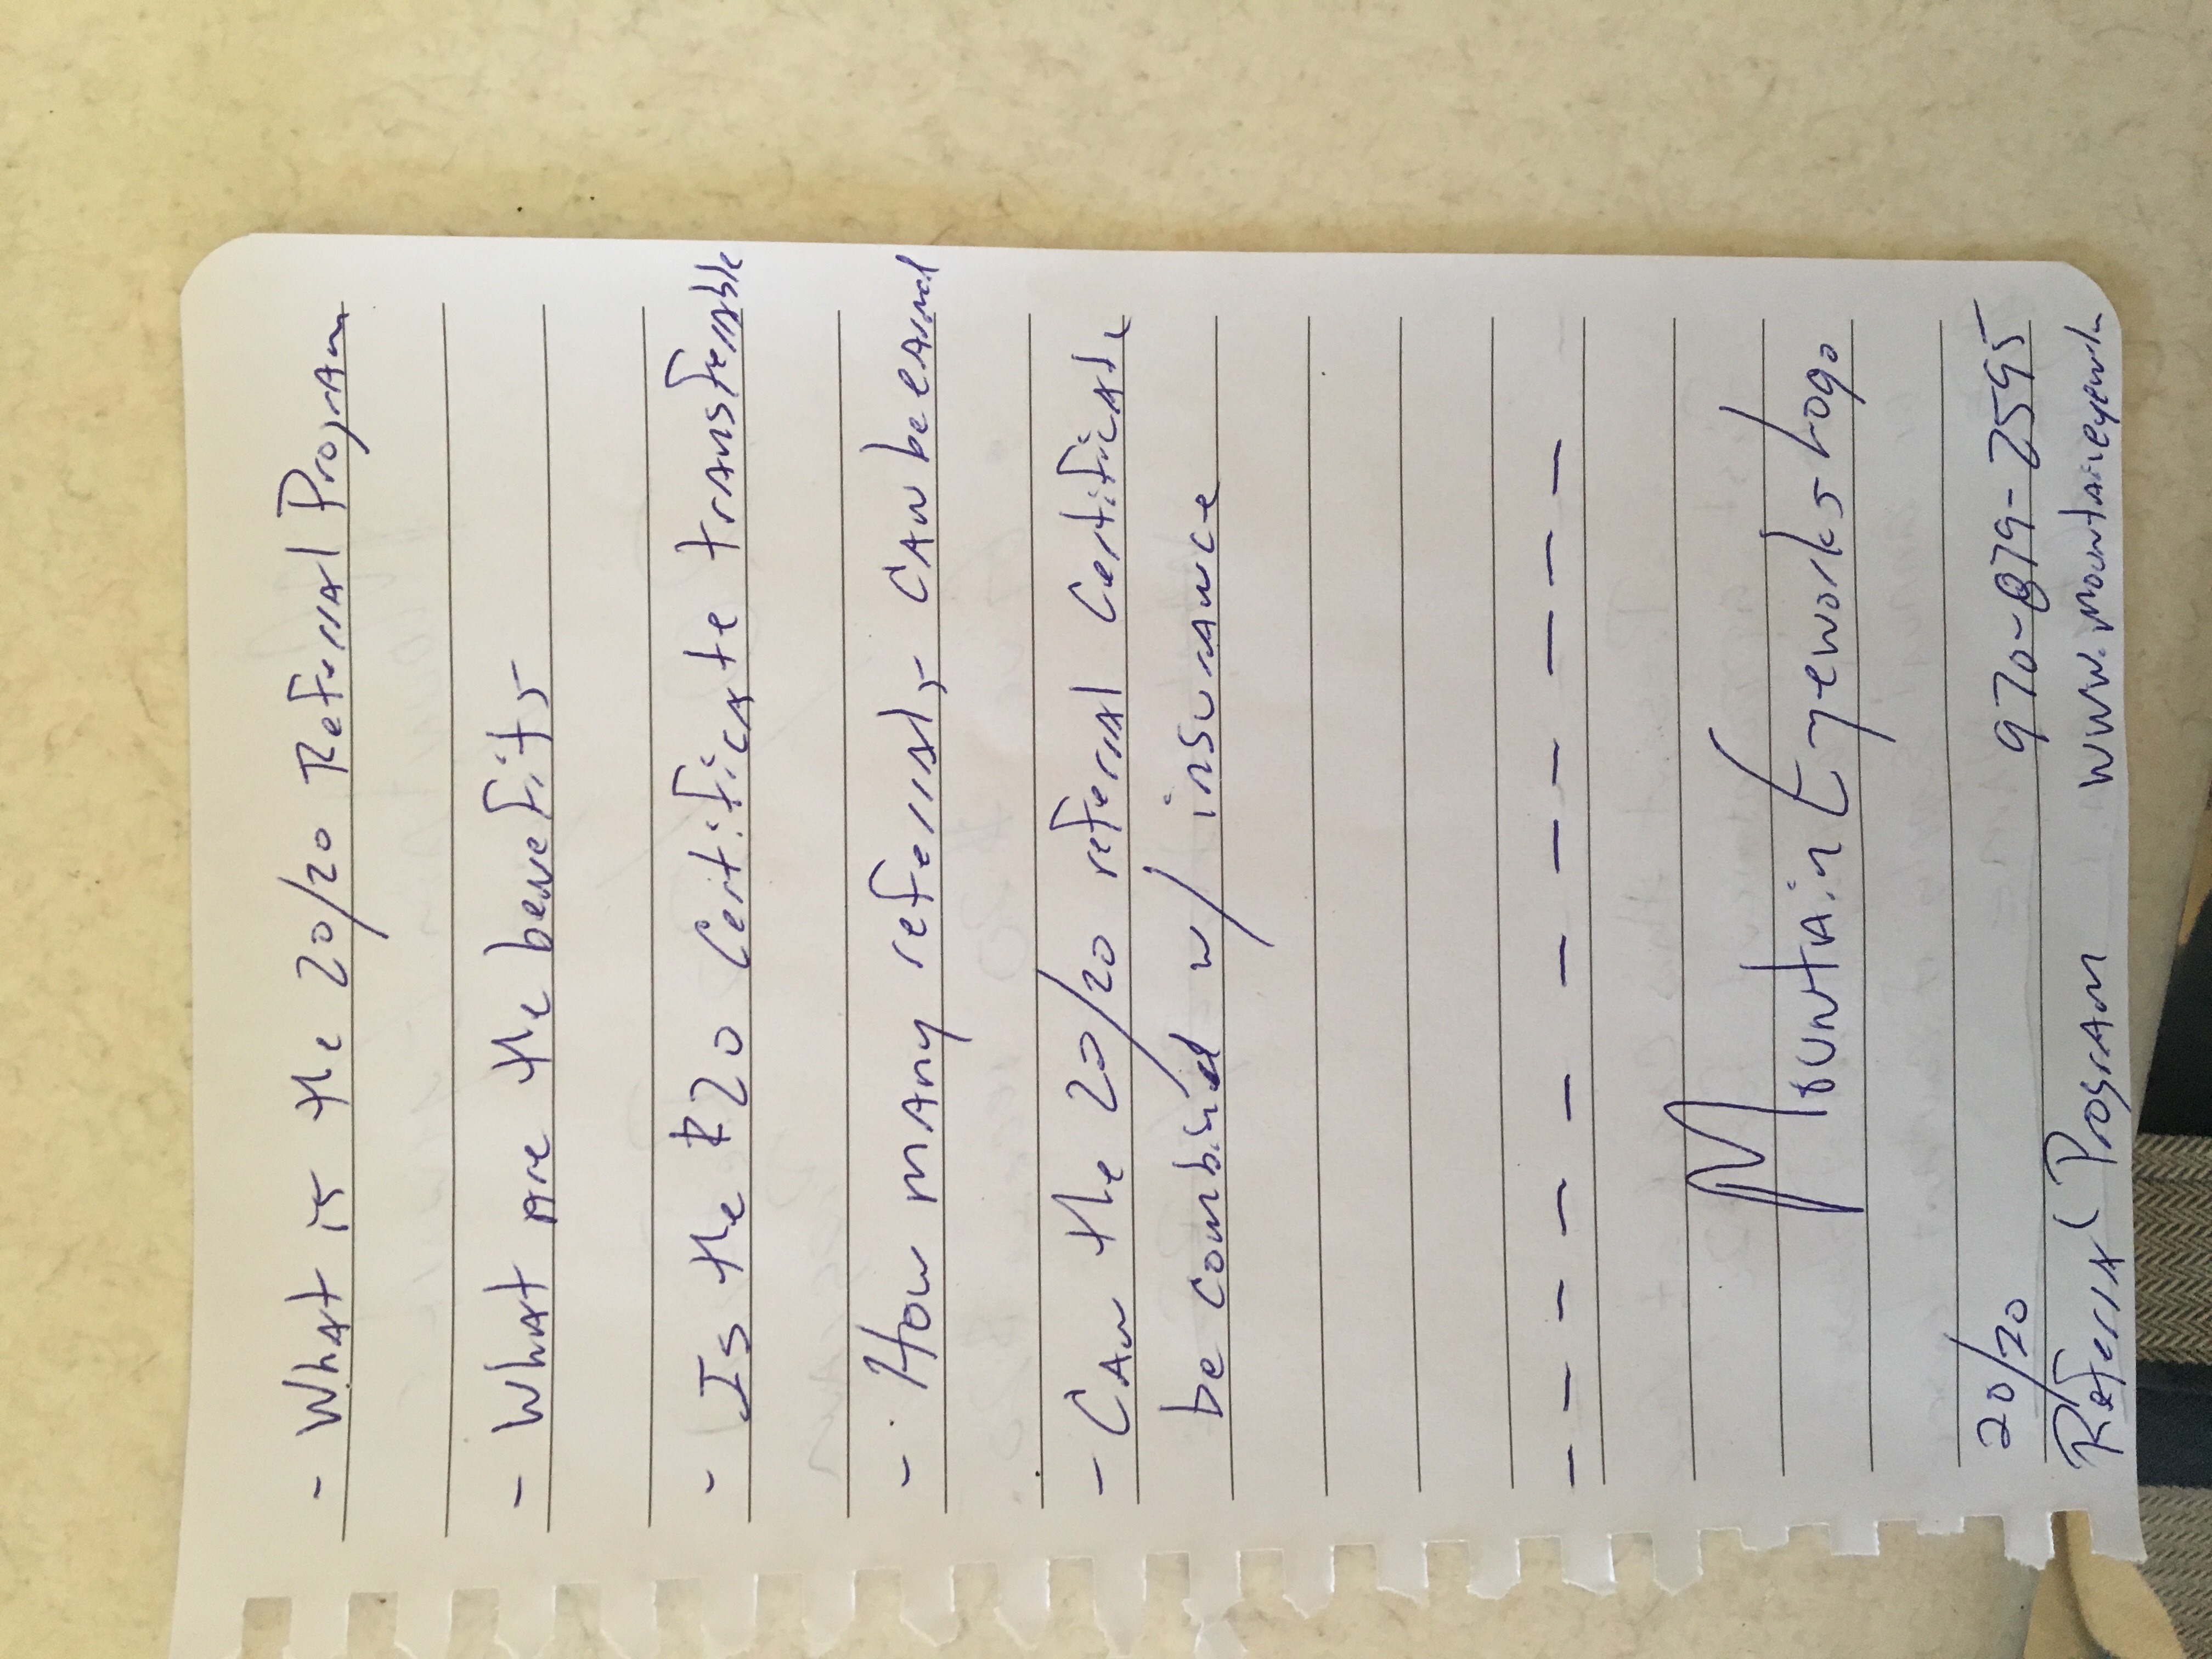 - What is the 20/20 Referral Program
- What are the benefits
- Is the R20 Certificate transferrable
- How many referrals can be earned
- Can the 20/20 referral certificate
be combined w/ insurance
- - - - - - - - - - - -
Mountain Eyeworks logo
20/20 970-879-2595
Referral Program www.mountaineyewk